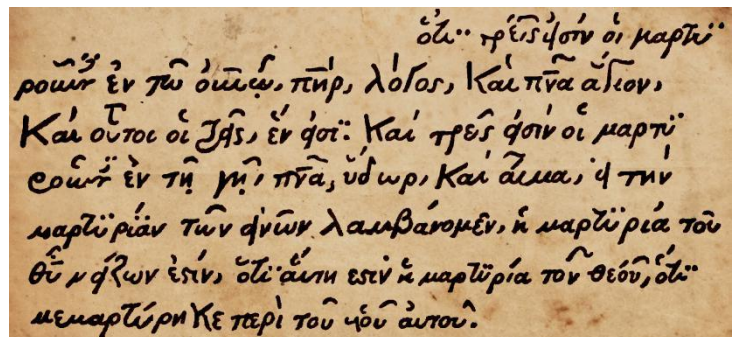 ὅτι τρεῖς εἰσίν οἱ μαρτϋ
ροῦντ ἐν τῶ οὐνῶ, πηρ, λόγος, Καὶ πνα ἅγιον,
Καὶ οὗτοι οἱ τρεῖς, ἕν εἰσϊ. Καὶ τρεῖς εἰσίν οἱ μαρτϋ
ροῦντ ἐν τῆ γῆ, πνα, ὕδωρ, Καὶ αἷμα, εἰ τὴν
μαρτϋρίαν τῶν ἀνων λαμβάνομεν, ἡ μαρτϋρία τοῦ
θυ μείζων ἐστίν, ὅτϊ αὕτη ἐστὶν ἡ μαρτϋρία τοῦ θεοῦ, ὅτϊ
μεμαρτύρηΚε περὶ τοῦ υἱοῦ αὐτοῦ.